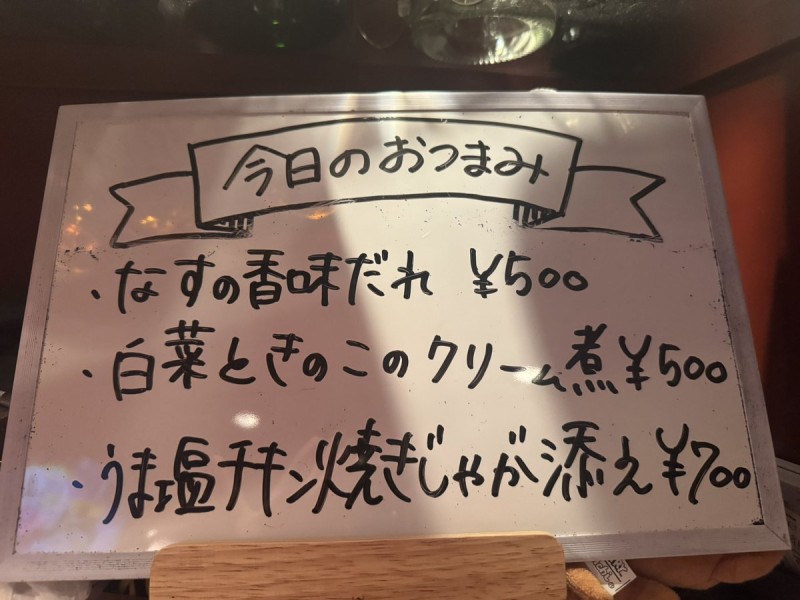 今日のおつまみ
・なすの香味だれ ¥500
・白菜ときのこのクリーム煮 ¥500
・うま塩チキン焼きじゃが添え ¥700